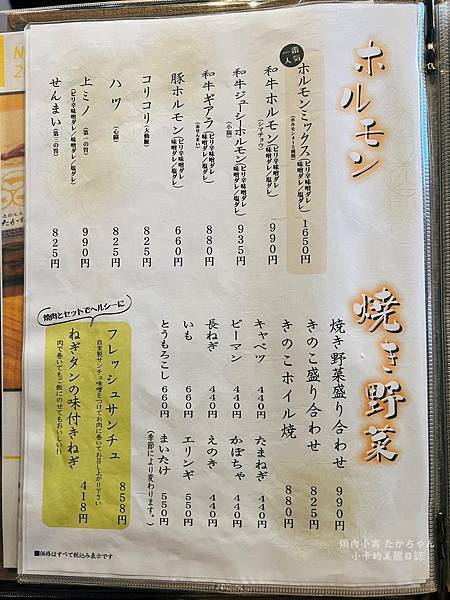 ホルモン
一番人気
ホルモンミックス(ピリ辛味噌ダレ/味噌ダレ/塩ダレ) 1650円
和牛ホルモン(ピリ辛味噌ダレ/味噌ダレ/塩ダレ) 990円
(シマチョウ)
和牛ジューシーホルモン(ピリ辛味噌ダレ/味噌ダレ/塩ダレ) 935円
(小腸)
和牛ギアラ(ピリ辛味噌ダレ/味噌ダレ/塩ダレ) 880円
(赤せんまい)
豚ホルモン(ピリ辛味噌ダレ/味噌ダレ/塩ダレ) 660円
コリコリ(大動脈) 825円
ハツ(心臓) 825円
上ミノ(第一の胃) 990円
(ピリ辛味噌ダレ/味噌ダレ/塩ダレ)
せんまい(第三の胃) 825円
焼き野菜
焼き野菜盛り合わせ 990円
きのこ盛り合わせ 825円
きのこホイル焼 880円
キャベツ 440円
たまねぎ 440円
ピーマン 440円
かぼちゃ 440円
長ねぎ 440円
えのき 440円
いも 660円
エリンギ 550円
とうもろこし 660円
まいたけ 550円
(季節により変わります。)
焼肉とセットでヘルシーに
フレッシュサンチュ 858円
自家製サンチュ味噌をつけてお肉に巻いてお召し上がり下さい
ねぎタンの味付きねぎ 418円
肉で巻いてもご飯にのせてもおいしい!!
■価格はすべて税込み表示です
焼肉小高 たかちゃん
小卡的美麗日誌